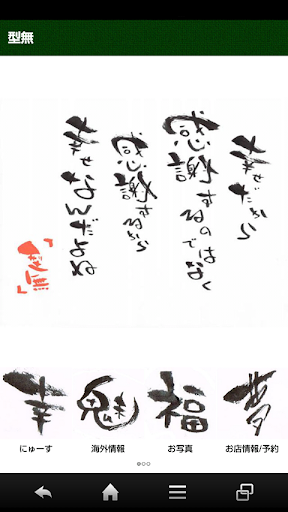 型無
幸せだから
感謝するのではなく
感謝するから
幸せなんだよね
「型無」
幸
魁
福
夢
にゅーす
海外情報
お写真
お店情報/予約